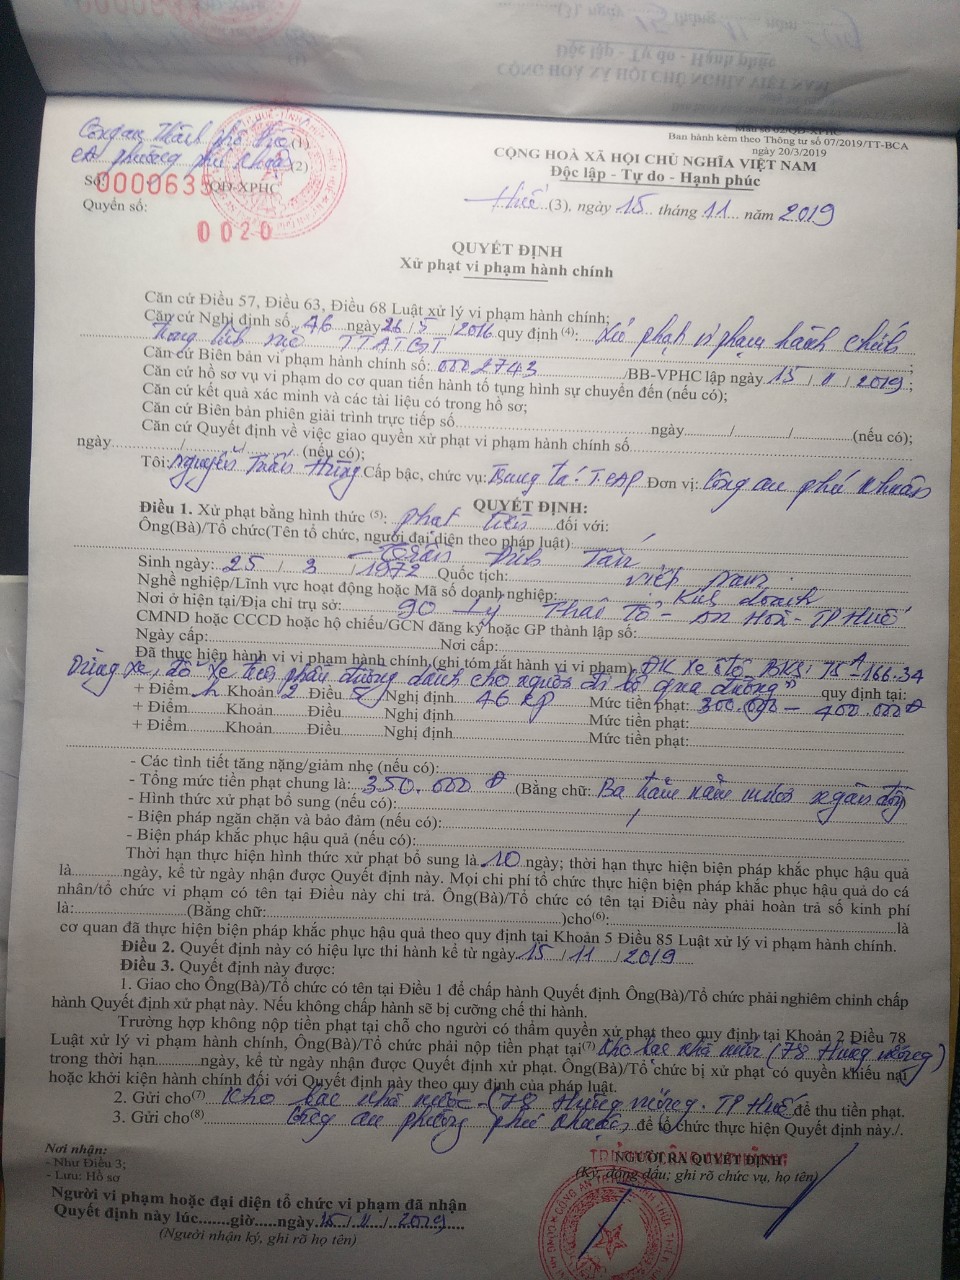 Mẫu số 02/QĐ-XPHC
Ban hành kèm theo Thông tư số 07/2019/TT-BCA
ngày 20/3/2019
Công an Thành phố Huế (1)
CA phường Phú Thuận (2)
Số: 0000635 /QĐ-XPHC
Quyển số: 0020
CỘNG HOÀ XÃ HỘI CHỦ NGHĨA VIỆT NAM
Độc lập - Tự do - Hạnh phúc
Huế (3), ngày 15 tháng 11 năm 2019
QUYẾT ĐỊNH
Xử phạt vi phạm hành chính
Căn cứ Điều 57, Điều 63, Điều 68 Luật xử lý vi phạm hành chính;
Căn cứ Nghị định số 46 ngày 26 / 5 / 2016 quy định (4): Xử phạt vi phạm hành chính
trong lĩnh vực TTATGT ;
Căn cứ Biên bản vi phạm hành chính số: 0002743 /BB-VPHC lập ngày 15 / 11 / 2019;
Căn cứ hồ sơ vụ vi phạm do cơ quan tiến hành tố tụng hình sự chuyển đến (nếu có);
Căn cứ kết quả xác minh và các tài liệu có trong hồ sơ;
Căn cứ Biên bản phiên giải trình trực tiếp số ngày / / (nếu có);
Căn cứ Quyết định về việc giao quyền xử phạt vi phạm hành chính số
ngày / / (nếu có);
Tôi: Nguyễn Tuấn Hùng Cấp bậc, chức vụ: Trung tá: T.CAP Đơn vị: Công an phú thuận
QUYẾT ĐỊNH:
Điều 1. Xử phạt bằng hình thức (5): phạt tiền đối với:
Ông(Bà)/Tổ chức(Tên tổ chức, người đại diện theo pháp luật):
Trần Đình Tân
Sinh ngày: 25 / 3 / 1972 Quốc tịch: Việt Nam
Nghề nghiệp/Lĩnh vực hoạt động hoặc Mã số doanh nghiệp: Kinh doanh
Nơi ở hiện tại/Địa chỉ trụ sở: 90 Lý Thái Tổ - An Hòa - TP Huế
CMND hoặc CCCD hoặc hộ chiếu/GCN đăng ký hoặc GP thành lập số:
Ngày cấp: Nơi cấp:
Đã thực hiện hành vi vi phạm hành chính (ghi tóm tắt hành vi vi phạm) ĐK xe ôtô BKS: 75A-166.34
Dừng xe, đỗ xe trên phần đường dành cho người đi bộ qua đường" quy định tại:
+ Điểm h Khoản 2 Điều 5 Nghị định 46 CP Mức tiền phạt: 300.000 - 400.000đ
+ Điểm Khoản Điều Nghị định Mức tiền phạt:
+ Điểm Khoản Điều Nghị định Mức tiền phạt:
- Các tình tiết tăng nặng/giảm nhẹ (nếu có):
- Tổng mức tiền phạt chung là: 350.000 đ (Bằng chữ: Ba trăm năm mươi ngàn đồng
- Hình thức xử phạt bổ sung (nếu có):
- Biện pháp ngăn chặn và bảo đảm (nếu có):
- Biện pháp khắc phục hậu quả (nếu có):
Thời hạn thực hiện hình thức xử phạt bổ sung là 10 ngày; thời hạn thực hiện biện pháp khắc phục hậu quả
là ngày, kể từ ngày nhận được Quyết định này. Mọi chi phí tổ chức thực hiện biện pháp khắc phục hậu quả do cá
nhân/tổ chức vi phạm có tên tại Điều này chi trả. Ông(Bà)/Tổ chức có tên tại Điều này phải hoàn trả số kinh phí
là: (Bằng chữ: )cho(6): là
cơ quan đã thực hiện biện pháp khắc phục hậu quả theo quy định tại Khoản 5 Điều 85 Luật xử lý vi phạm hành chính.
Điều 2. Quyết định này có hiệu lực thi hành kể từ ngày 15 / 11 / 2019
Điều 3. Quyết định này được:
1. Giao cho Ông(Bà)/Tổ chức có tên tại Điều 1 để chấp hành Quyết định. Ông(Bà)/Tổ chức phải nghiêm chỉnh chấp
hành Quyết định xử phạt này. Nếu không chấp hành sẽ bị cưỡng chế thi hành.
Trường hợp không nộp tiền phạt tại chỗ cho người có thẩm quyền xử phạt theo quy định tại Khoản 2 Điều 78
Luật xử lý vi phạm hành chính, Ông(Bà)/Tổ chức phải nộp tiền phạt tại(7) Kho bạc nhà nước (78 Hùng Vương)
trong thời hạn ngày, kể từ ngày nhận được Quyết định xử phạt. Ông(Bà)/Tổ chức bị xử phạt có quyền khiếu nại
hoặc khởi kiện hành chính đối với Quyết định này theo quy định của pháp luật.
2. Gửi cho(7) Kho bạc nhà nước (78 Hùng Vương. TP Huế để thu tiền phạt.
3. Gửi cho(8) Công an phường phú thuận để tổ chức thực hiện Quyết định này./.
Nơi nhận:
- Như Điều 3;
- Lưu: Hồ sơ
Người vi phạm hoặc đại diện tổ chức vi phạm đã nhận
Quyết định này lúc giờ ngày 15 / 11 / 2019
(Người nhận ký, ghi rõ họ tên)
NGƯỜI RA QUYẾT ĐỊNH
(Ký, đóng dấu; ghi rõ chức vụ, họ tên)